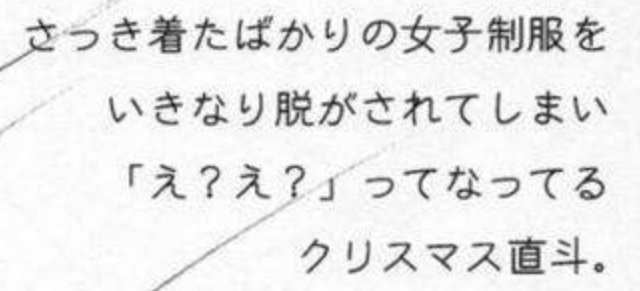 さっき着たばかりの女子制服を
いきなり脱がされてしまい
「え？え？」ってなってる
クリスマス直斗。